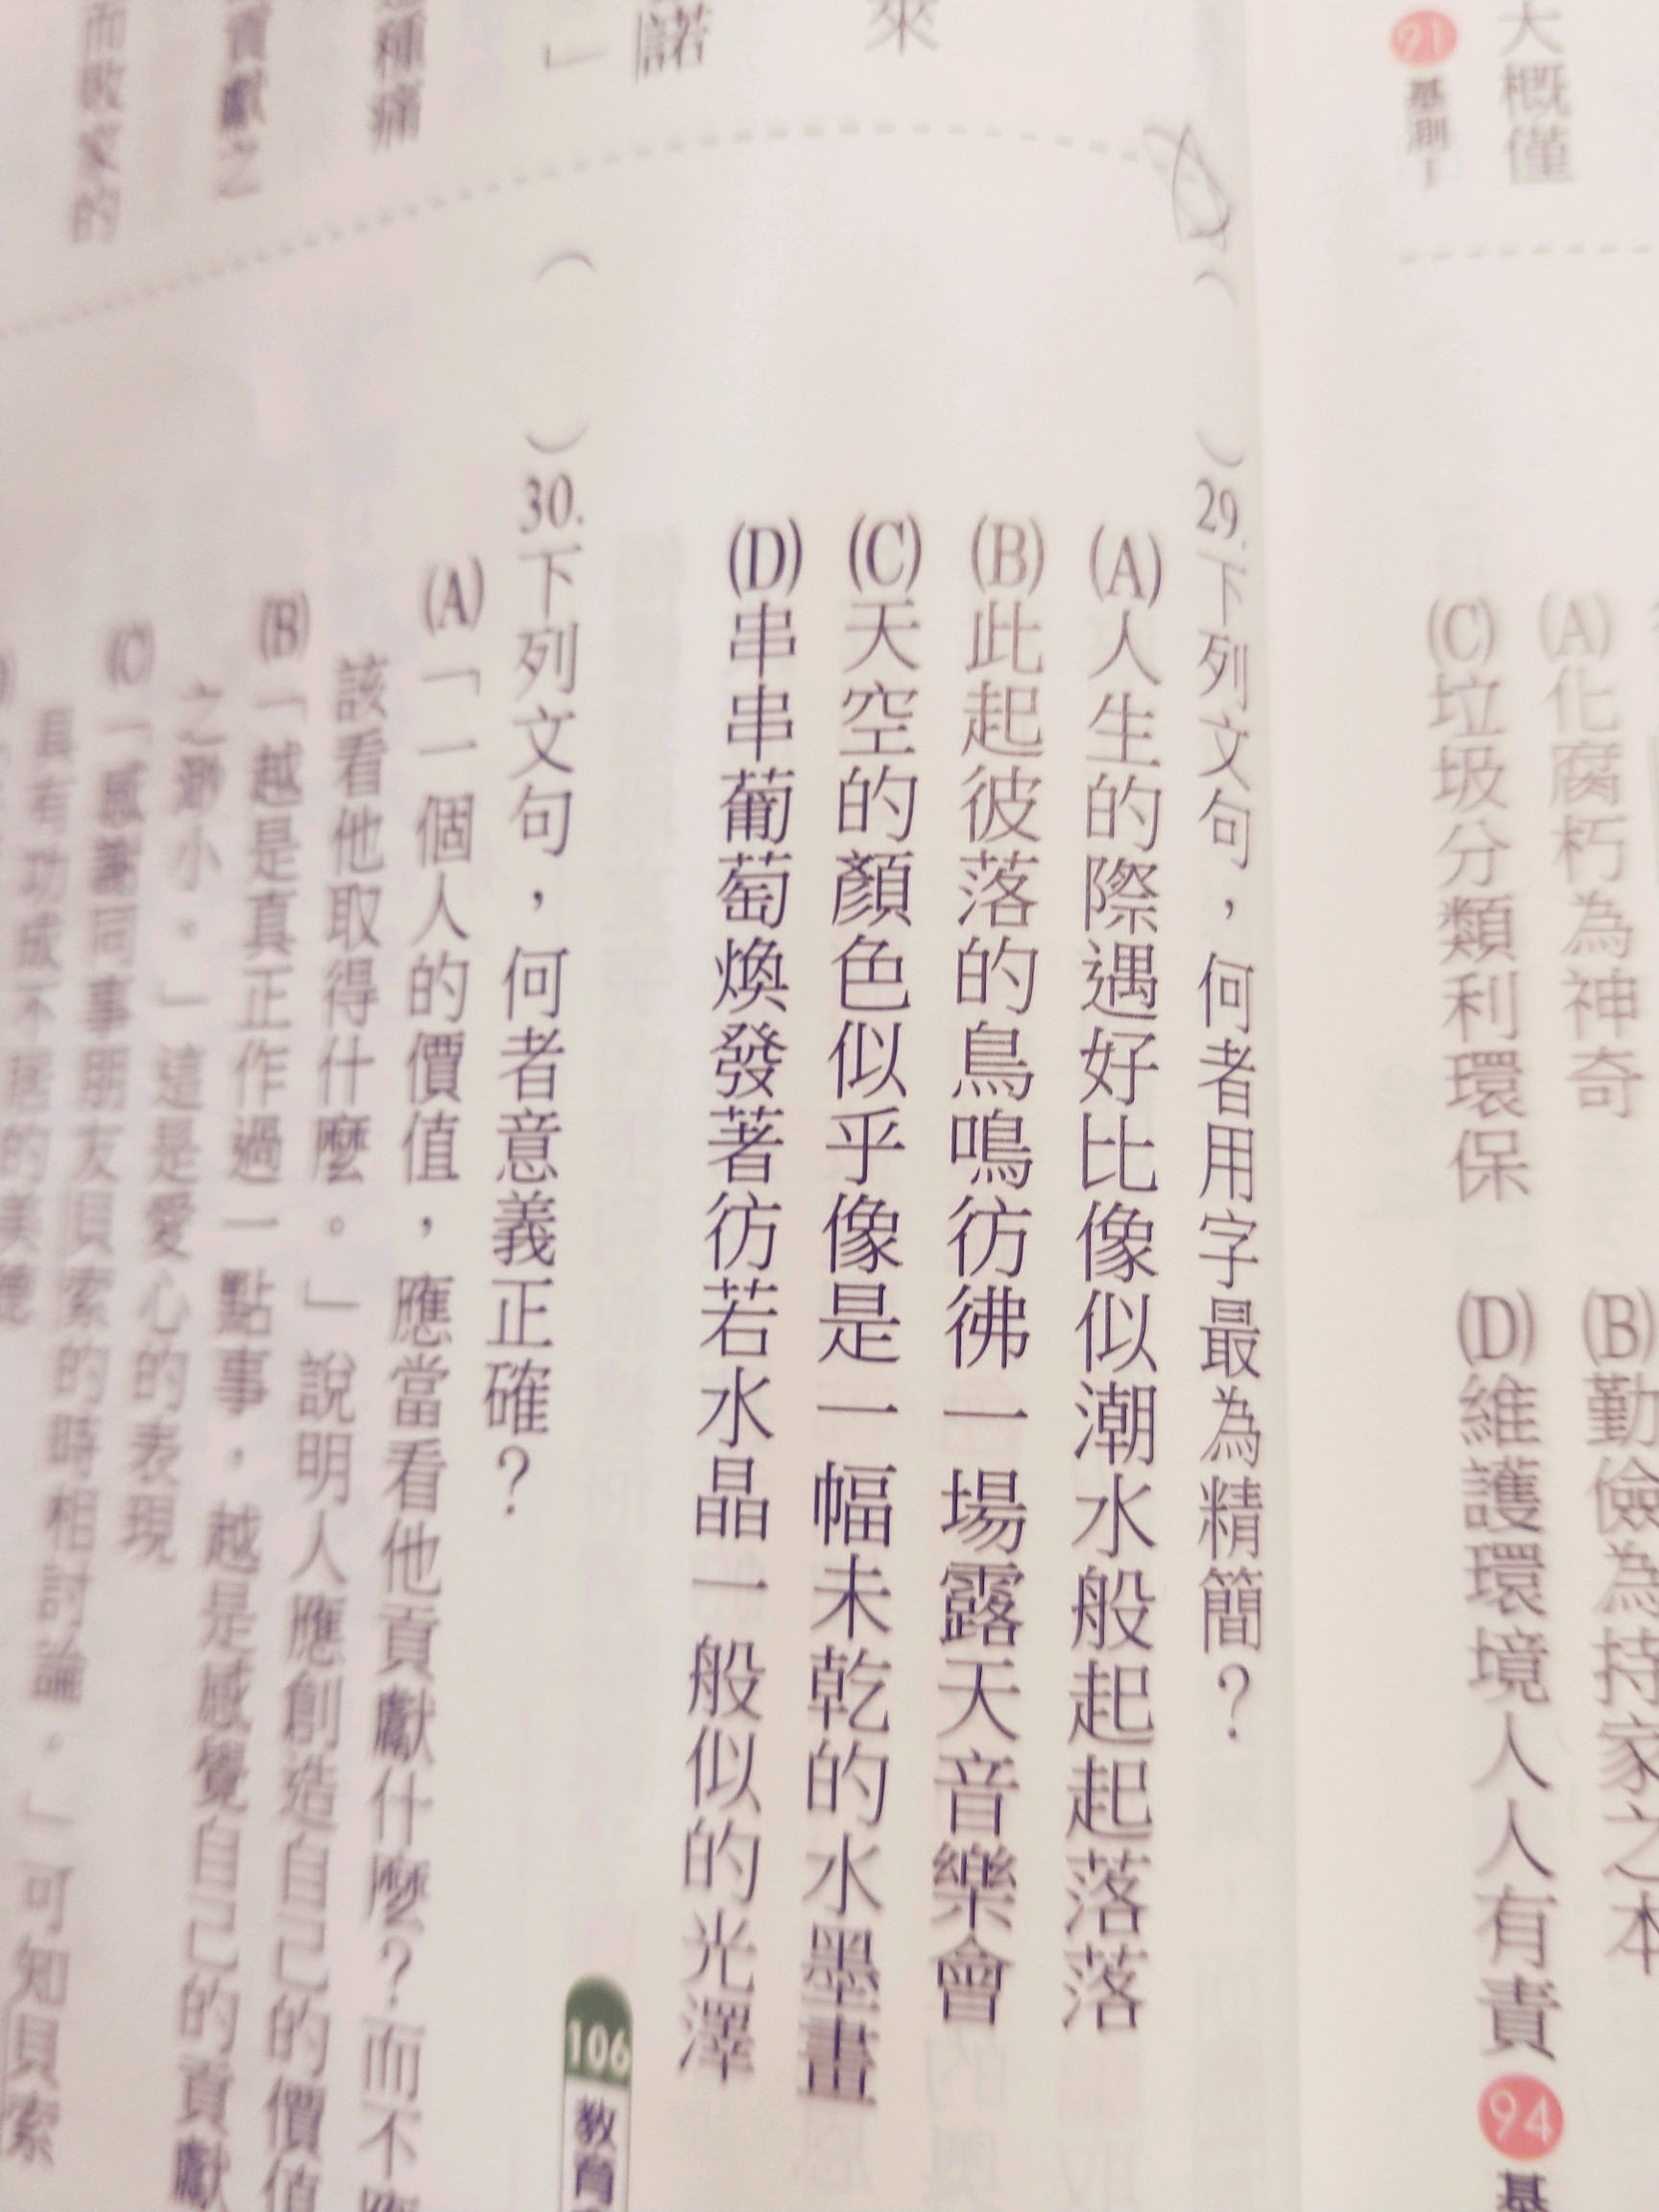 大概僅
91 基測Ⅰ
(A)化腐朽為神奇
(B)勤儉為持家之本
(C)垃圾分類利環保
(D)維護環境人人有責 94 基
來
諾
( )29.下列文句，何者用字最為精簡？
(A)人生的際遇好比像似潮水般起起落落
(B)此起彼落的鳥鳴彷彿一場露天音樂會
(C)天空的顏色似乎像是一幅未乾的水墨畫
(D)串串葡萄煥發著彷若水晶一般似的光澤
106 教育
( )30.下列文句，何者意義正確？
(A)「一個人的價值，應當看他貢獻什麼？而不應
該看他取得什麼。」說明人應創造自己的價值
(B)「越是真正作過一點事，越是感覺自己的貢獻
之渺小。」這是愛心的表現
(C)「感謝同事朋友貝索的時相討論。」可知貝索
具有功成不居的美德
種痛
貢獻之
而敗家的